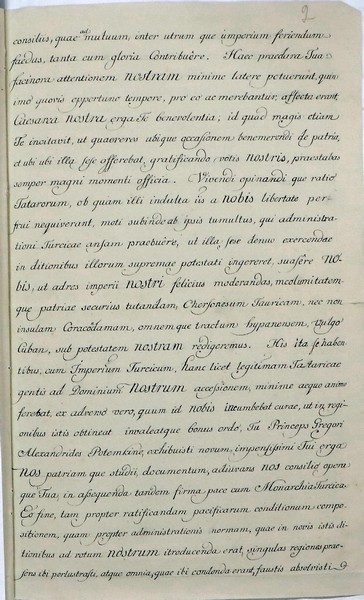 2
consiliis, quae ad mutuum, inter utrum que imperium feriendum
faedus, tanta cum gloria Contribuêre. Haec praeclara Tua
facinora attentionem nostram minime latere potuerunt, quin
imo quovis opportuno tempore, pro eo ac merebantur, affecta erant,
Caesarea nostra erga Te benevolentia; id quod magis etiam
Te invitavit, ut quaereres ubique occasionem benemerendi de patria,
et ubi ubi illa sese offerebat, gratificando votis nostris, praestabas
semper magni momenti officia. Vivendi opinandi que ratio
Tatarorum, ob quam illi indulta iis a nobis libertate per-
frui nequiverant, moti subinde ab ipsis tumultus, qui administra-
tioni Turcicae ansam praebuêre, ut illa sese denuo exercendae
in ditionibus illorum supremae potestati ingereret, suasêre no-
bis, ut ad res imperii nostri felicius moderandas, incolumitatem-
que patriae securius tutandam, Chersonesum Tauricam, nec non
insulam Corocodamam, omnem que tractum hypanensem, vulgo
Cuban, sub potestatem nostram redigeremus. His ita se haben-
tibus, cum Imperium Turcicum, hanc licet legitimam Tartaricae
gentis ad Dominium nostrum accessionem, minime aequo animo
ferebat, ex adverso vero, quum id nobis incumbebat curae, ut in regi-
onibus istis obtineat invaleatque bonus ordo, Tu Princeps Gregori
Alexandrides Potemkine, exhibuisti novum, impensissimi Tui erga
nos patriam que studii, documentum, adiuvans nos consilio opera
que Tua, in assequenda tandem firma pace cum Monarchia Turcica.
Eo fine, tam propter ratificandam pacificarum conditionum compo-
sitionem, quam propter administrationis normam, quae in novis istis di-
tionibus ad votum nostrum introducenda erat, singulas regiones prae-
sens ibi perlustrasti, atque omnia, quae ibi condenda erant, faustis absolvisti